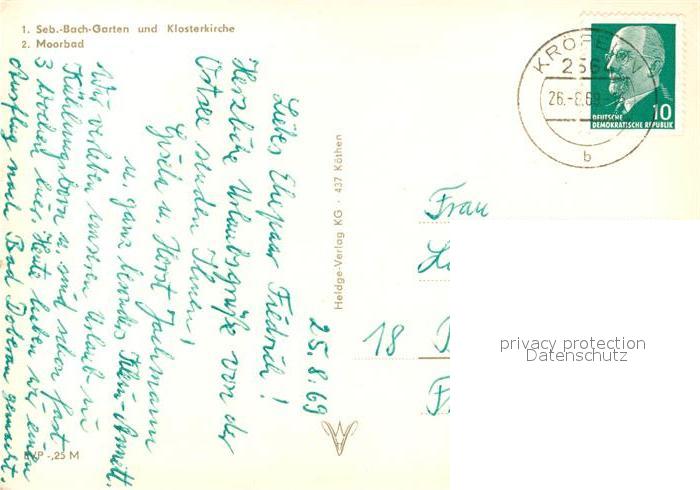 1. Seb.-Bach-Garten und Klosterkirche
2. Moorbad
25.8.69
Liebes Ehepaar Friedrich!
Herzliche Urlaubsgrüße von der
Ostsee senden Ihnen!
Gisela u. Horst Jachmann
u. ganz besonders Klein-Annett.
Wir verleben unseren Urlaub in
Kühlungsborn u. sind schon fast
3 Wochen hier. Heute haben wir einen
Ausflug nach Bad Doberan gemacht.
EVP -,25 M
Heldge-Verlag KG · 437 Köthen
KRÖPELIN
256
26.-8.69
b
10
DEUTSCHE
DEMOKRATISCHE REPUBLIK
Frau
18
privacy protection
Datenschutz